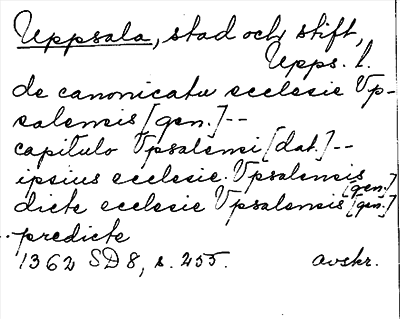 Uppsala, stad och stift,
Upps. l.
de canonicatu ecclesie Vp-
salensis [gen.] --
capitulo Vpsalensi [dat.] --
ipsius ecclesie Vpsalensis [gen.]
dicte ecclesie Vpsalensis [gen.]
.. predicte
1362 SD 8, s. 255. avskr.